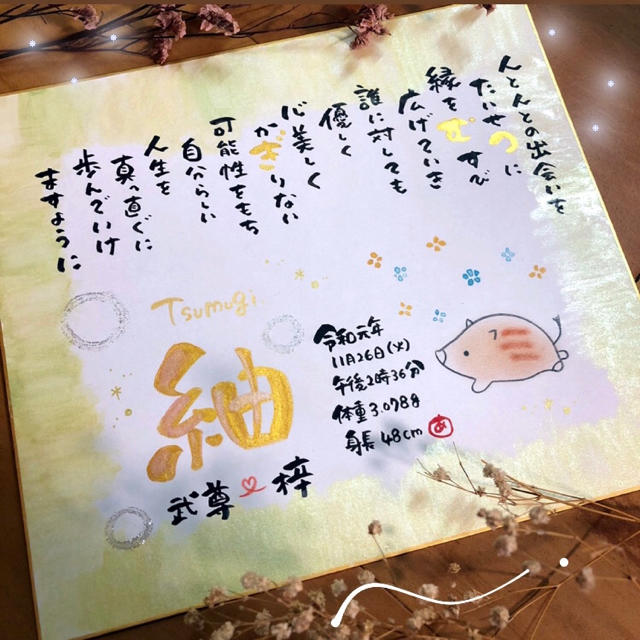 人と人との出会いを
たいせつに
縁をむすび
広げていき
誰に対しても
優しく
心美しく
かぎりない
可能性をもち
自分らしい
人生を
真っ直ぐに
歩んでいけ
ますように
Tsumugi
紬
令和元年
11月26日(火)
午後2時36分
体重3.078g
身長48cm
あ
武尊♡梓